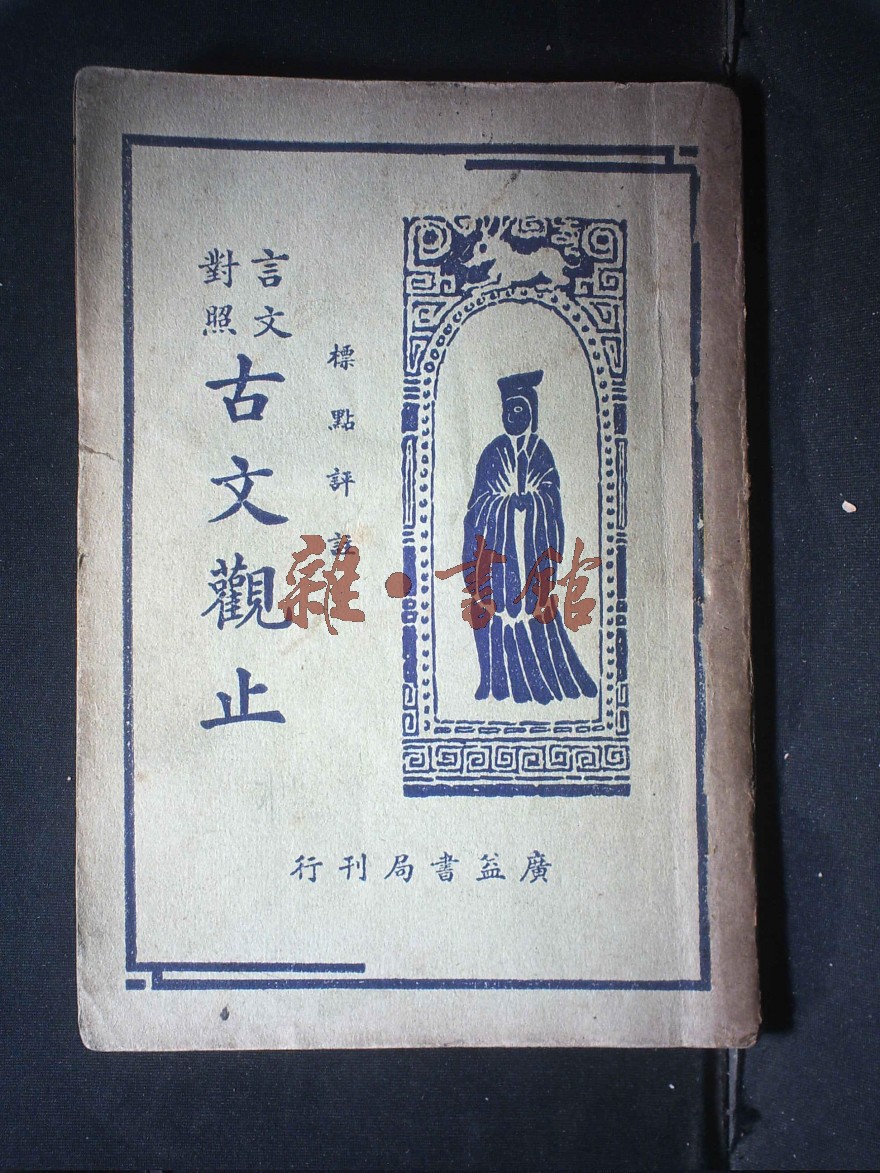 標點評註
言文
對照
古文觀止
廣益書局刊行
雜·書館